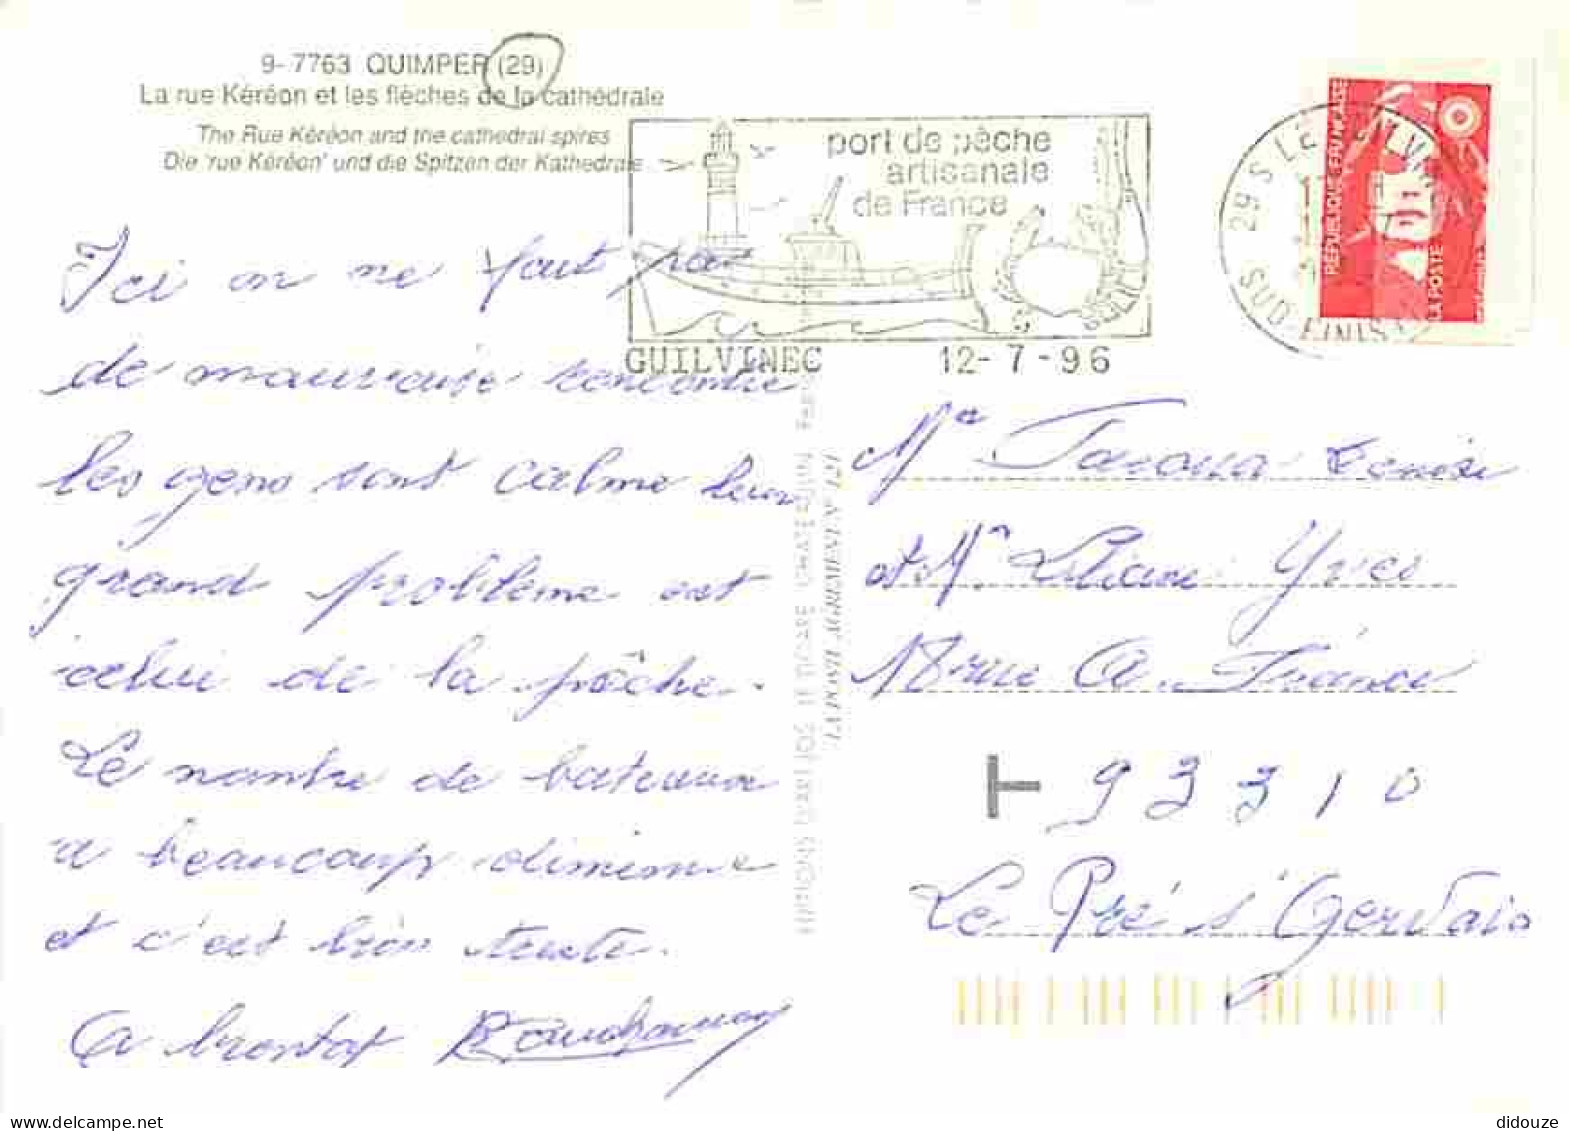 9-7763 QUIMPER (29)
La rue Kéréon et les flèches de la cathédrale
The Rue Kéréon and the cathedral spires
Die 'rue Kéréon' und die Spitzen der Kathedrale
port de pêche
artisanale
de France
GUILVINEC 12-7-96
29 S LE GUILVINEC
SUD FINIST
RÉPUBLIQUE FRANÇAISE
LA POSTE
Ici on ne faut pas
de mauvaise rencontre
les gens sont calme leur
grand problème est
celui de la pêche.
Le nombre de bateaux
a beaucoup diminue
et c'est bien triste.
A bientot
et Mr Yves
18 rue A. France
T 93310
Le Pré s' Gervais
www.delcampe.net
didouze